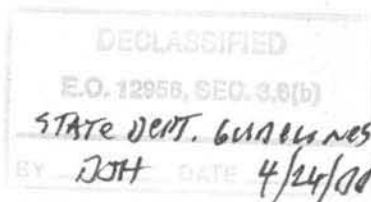 DECLASSIFIED
E.O. 12958, SEC. 3.6(b)
STATE DEPT. GUIDELINES
BY DJH DATE 4/24/00